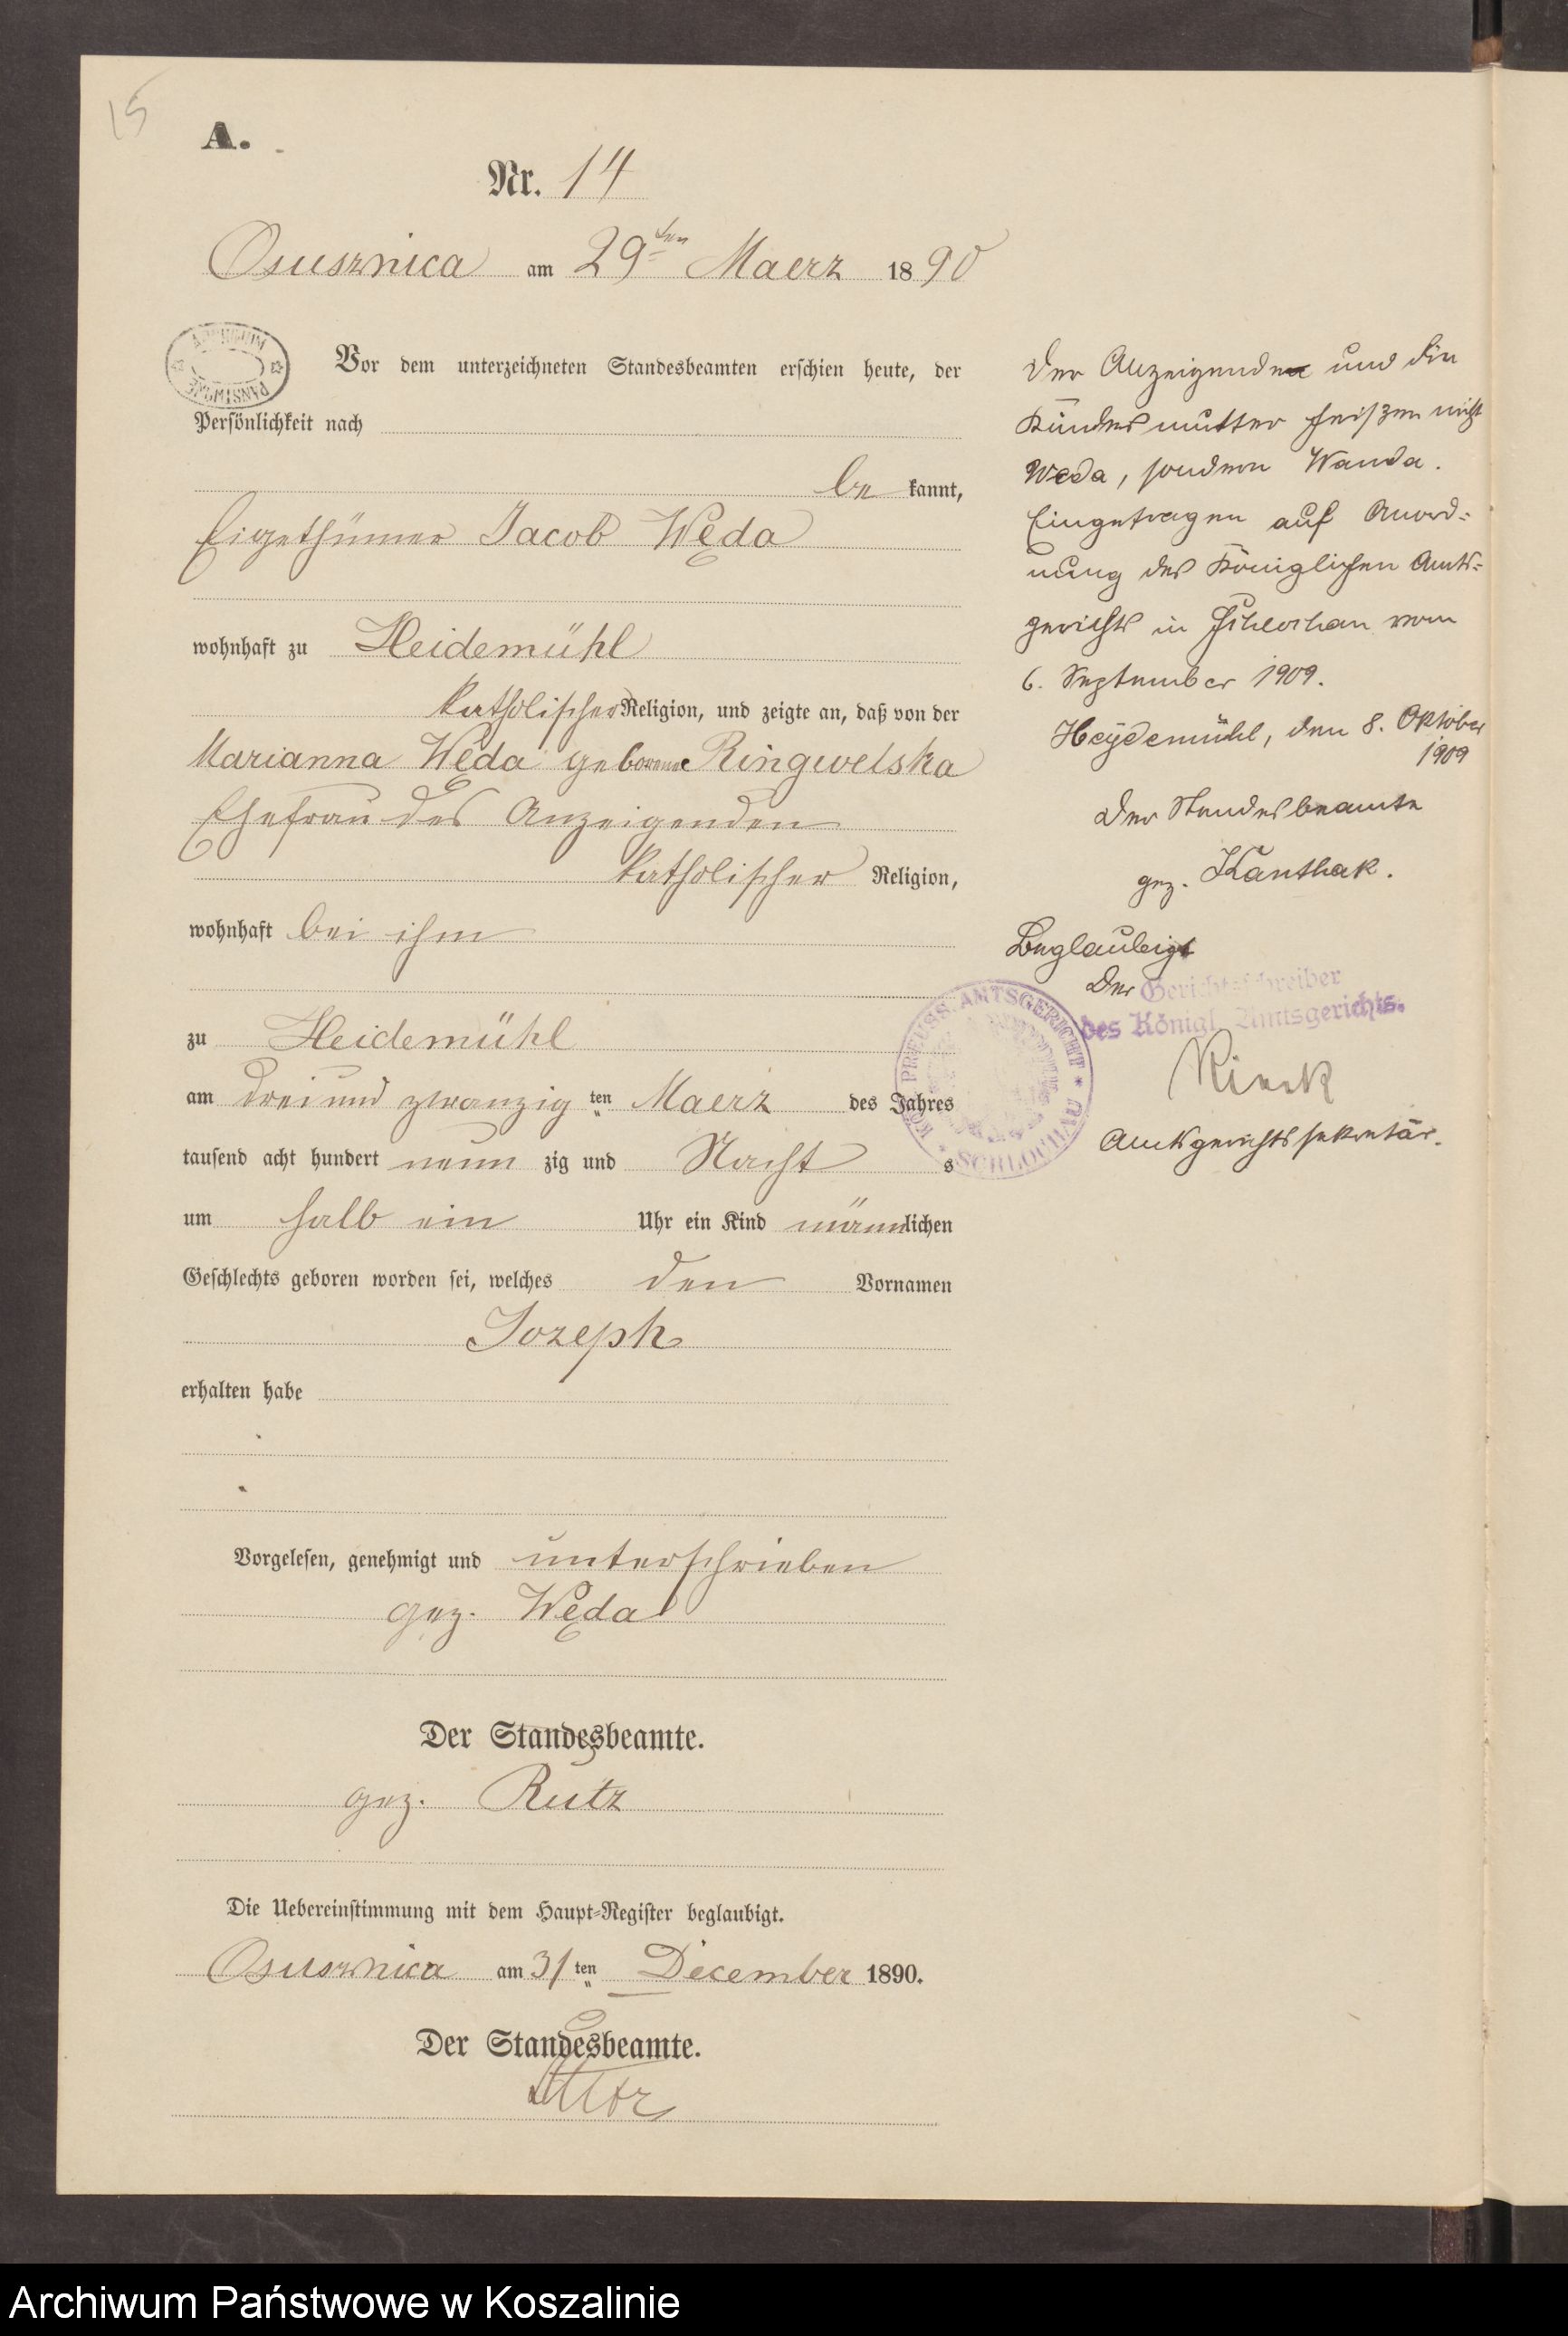 15
A.
Nr. 14
Osusznica am 29ten Maerz 1890
ARCHIWUM PAŃSTWOWE
Vor dem unterzeichneten Standesbeamten erschien heute, der
Persönlichkeit nach
be kannt,
Eigethümer Jacob Węda
wohnhaft zu Heidemühl
katholischer Religion, und zeigte an, daß von der
Marianna Węda geborene Ringwelska
Ehefrau des Anzeigenden
katholischer Religion,
wohnhaft bei ihm
zu Heidemühl
am drei und zwanzig ten Maerz des Jahres
tausend acht hundert neun zig und Nacht s
um halb ein Uhr ein Kind männlichen
Geschlechts geboren worden sei, welches den Vornamen
Jozeph
erhalten habe
Vorgelesen, genehmigt und unterschrieben
gez. Węda
Der Standesbeamte.
gez. Rutz
Die Uebereinstimmung mit dem Haupt-Register beglaubigt.
Osusznica am 31 ten December 1890.
Der Standesbeamte.
Rutz
Der Anzeigende und die
Kindesmutter heißen nicht
Weda, sondern Wanda.
Eingetragen auf Anord-
nung des Königlichen Amts-
gerichts in Schlochau vom
6. September 1909.
Heydemühl, den 8. Oktober
1909
Der Standesbeamte
gez. Kanthak.
Beglaubigt
Der Gerichtsschreiber
des Königl. Amtsgerichts.
KÖN. PREUSS. AMTSGERICHT * SCHLOCHAU *
Amtsgerichtssekretär.
Archiwum Państwowe w Koszalinie